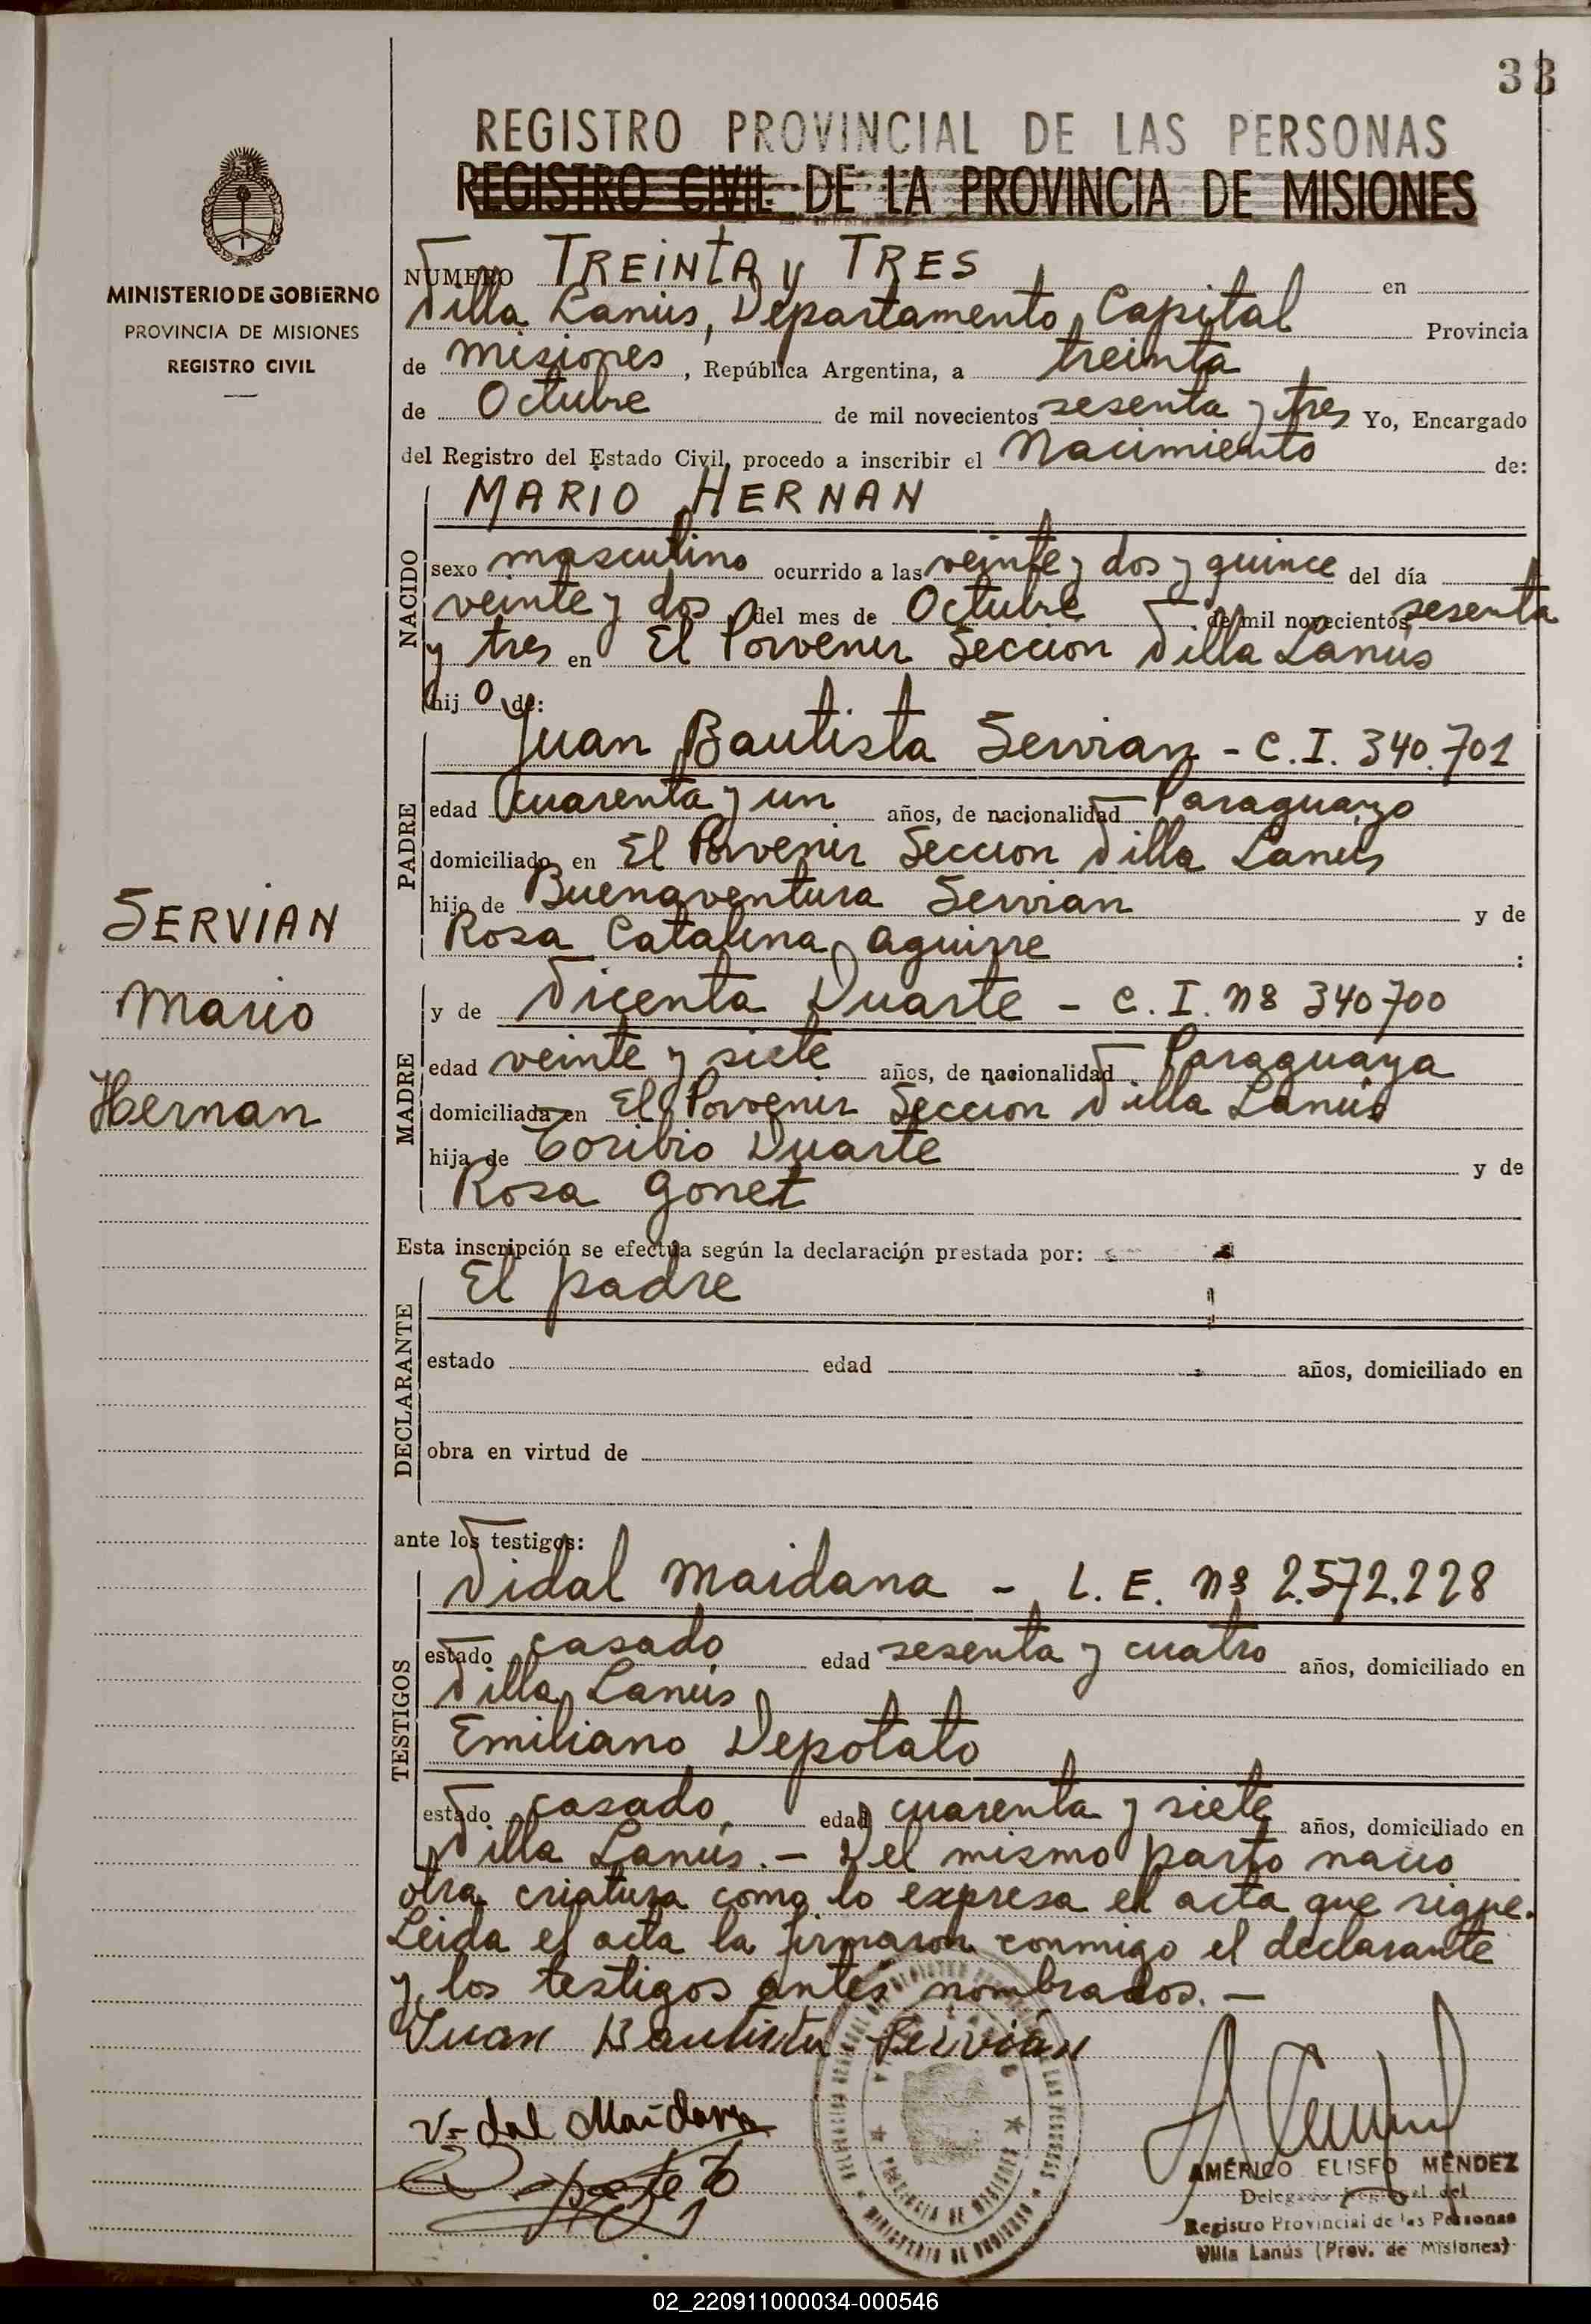 33
REGISTRO PROVINCIAL DE LAS PERSONAS
REGISTRO CIVIL DE LA PROVINCIA DE MISIONES
MINISTERIO DE GOBIERNO
PROVINCIA DE MISIONES
REGISTRO CIVIL
SERVIAN
Mario
Hernan
NUMERO TREINTA y TRES en
Villa Lanús, Departamento Capital Provincia
de Misiones, República Argentina, a treinta
de Octubre de mil novecientos sesenta y tres Yo, Encargado
del Registro del Estado Civil, procedo a inscribir el Nacimiento de:
NACIDO
MARIO HERNAN
sexo masculino ocurrido a las veinte y dos y quince del día
veinte y dos del mes de Octubre de mil novecientos sesenta
y tres en El Porvenir Seccion Villa Lanús
hijo de:
PADRE
Juan Bautista Servian - C.I. 340.701
edad cuarenta y un años, de nacionalidad Paraguayo
domiciliado en El Porvenir Seccion Villa Lanús
hijo de Buenaventura Servian y de
Rosa Catalina Aguirre :
MADRE
y de Vicenta Duarte - C.I. nº 340700
edad veinte y siete años, de nacionalidad Paraguaya
domiciliada en El Porvenir Seccion Villa Lanús
hija de Toribio Duarte y de
Rosa Gonet
Esta inscripción se efectúa según la declaración prestada por:
DECLARANTE
El padre
estado edad años, domiciliado en
obra en virtud de
ante los testigos:
TESTIGOS
Vidal Maidana - L.E. nº 2.572.228
estado casado edad sesenta y cuatro años, domiciliado en
Villa Lanús
Emiliano Depotato
estado casado edad cuarenta y siete años, domiciliado en
Villa Lanús.- Del mismo parto nacio
otra criatura como lo expresa el acta que sigue.
Leida el acta la firmaron conmigo el declarante
y los testigos antes nombrados.-
Juan Bautista Servián
Vidal Maidana
AMÉRICO ELISEO MÉNDEZ
Delegado Regional del
Registro Provincial de las Personas
Villa Lanús (Prov. de Misiones)
PROVINCIA DE MISIONES
MINISTERIO DE GOBIERNO
02_220911000034-000546